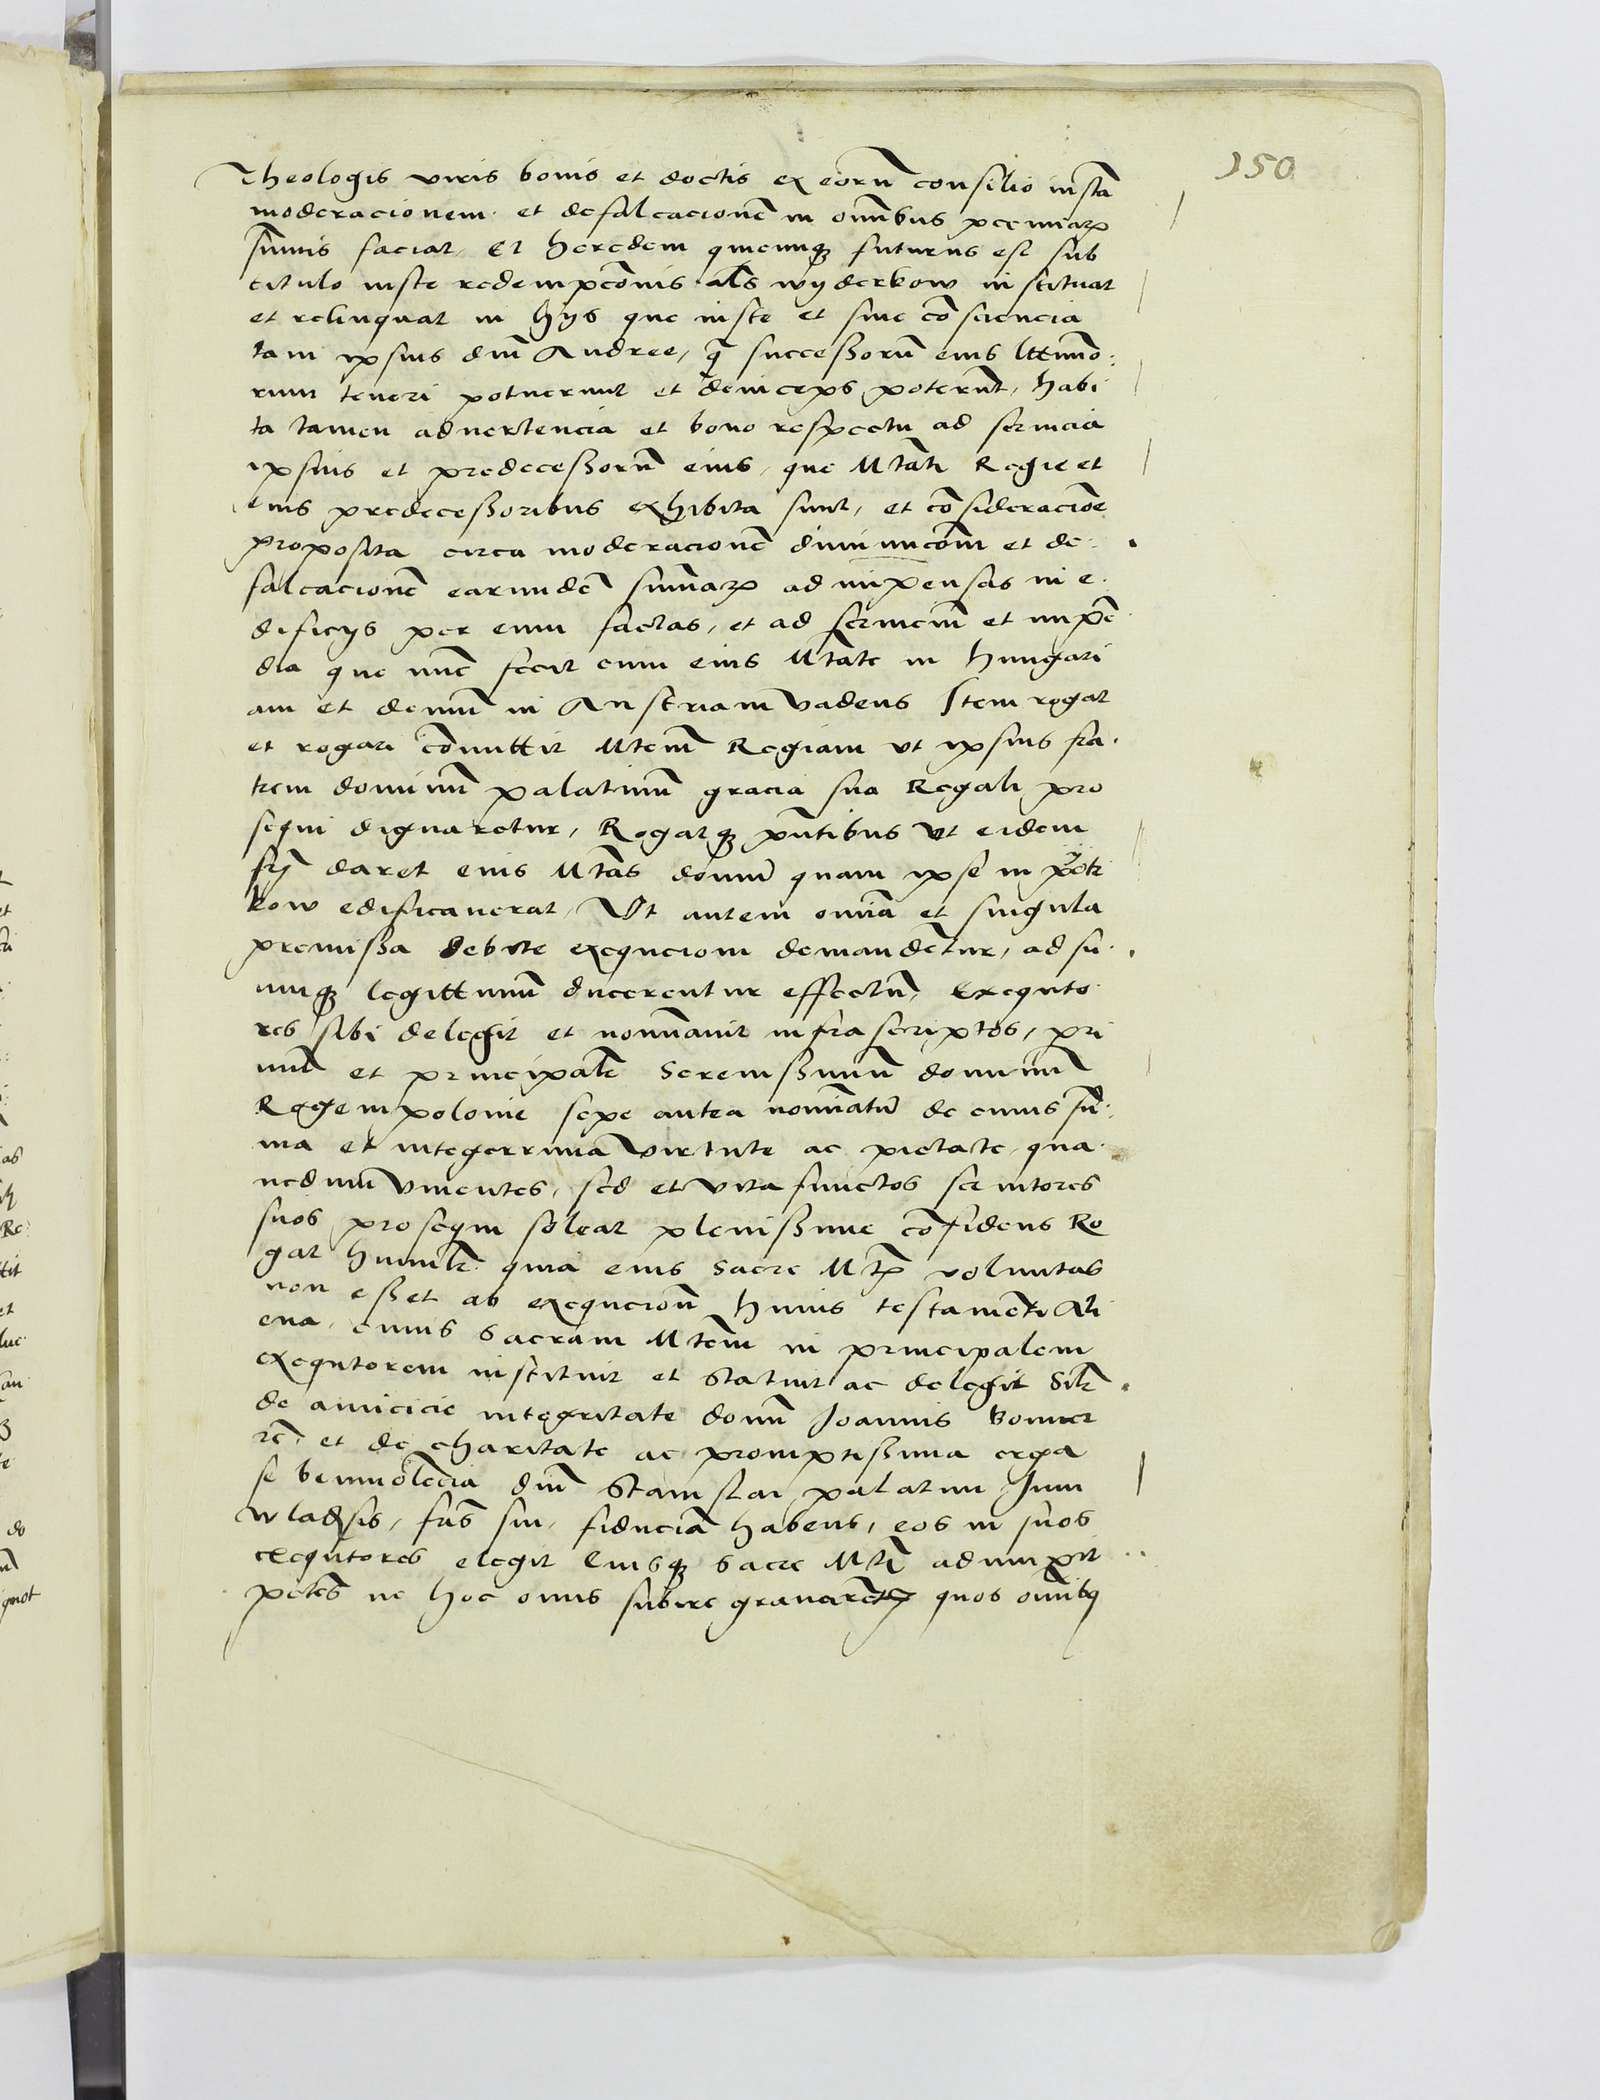 150
Theologis viris bonis et doctis ex eorũ consilio iustã
moderacionem et defalcacionẽ in omnibus pecuniaꝝ
sum̃is faciat, Et heredem quicunqꝫ futurus est sub
titulo iuste redempcõnis al̃s wyderkow instituat
et relinquat in hys que iuste et sine cõsciencia
tam ipsius dñi Andree, q̃ successorũ eius l̃ttimo
rum teneri potuerunt et deinceps poterũt, habi
ta tamen aduertencia et bono respectu ad seruicia
ipsius et predecessorũ eius, que M̃tati Regie et
eius predecessoribus exhibita sunt, et cõsideracioñe
proposita circa moderacionẽ diminucõem et de
falcacionẽ earundẽ sum̃aꝝ ad impensas in e
dificiis per eum factas, et ad seruiciũ et impẽ
dia que nũc fecit cum eius M̃tate in Hungari
am et demũ in Austriam vadens Item rogat
et rogari cõmittit M̃tem Regiam vt ipsius fra
trem dominũ palatinũ gracia sua Regali pro
sequi dignaretur, Rogatqꝫ pñtibus vt eidem
frĩ daret eius M̃tas domũ quam ipse in pyotr
kow edificauerat, Vt autem omĩa et singula
premissa debite execucioni demandẽtur, ad su
umqꝫ legittimũ ducerentur effectũ, Exequto
res sibi delegit et nomĩauit infrascriptos, pri
mũ et principalẽ Serenissimũ dominũ
Regem polonie sepe antea nomĩatũ de cuius sũ
ma et integerrima virtute ac pietate, qua
nedum viuentes, sed et vita functos seruitores
suos prosequi soleat plenissime cõfidens Ro
gat humilr̃ quia eius Sacre M̃tis voluntas
non esset ab execucioñ huius testamẽti Ali
ena, cuius Sacram M̃tem in principalem
exequtorem instituit et Statuit ac delegit Silr̃
de amicicie integritate domĩ Joannis Boner
et de charitate ac promptissima erga
se beniuolẽcia dñi Stanislai palatini Juni
wladis̃sis, fr̃is sui, fiduciã habens, eos in suos
exequtores elegit Eiusqꝫ sacre M̃ti adiunxit
petẽs ne hoc onus subire grauarẽtur quos omĩbꝫ